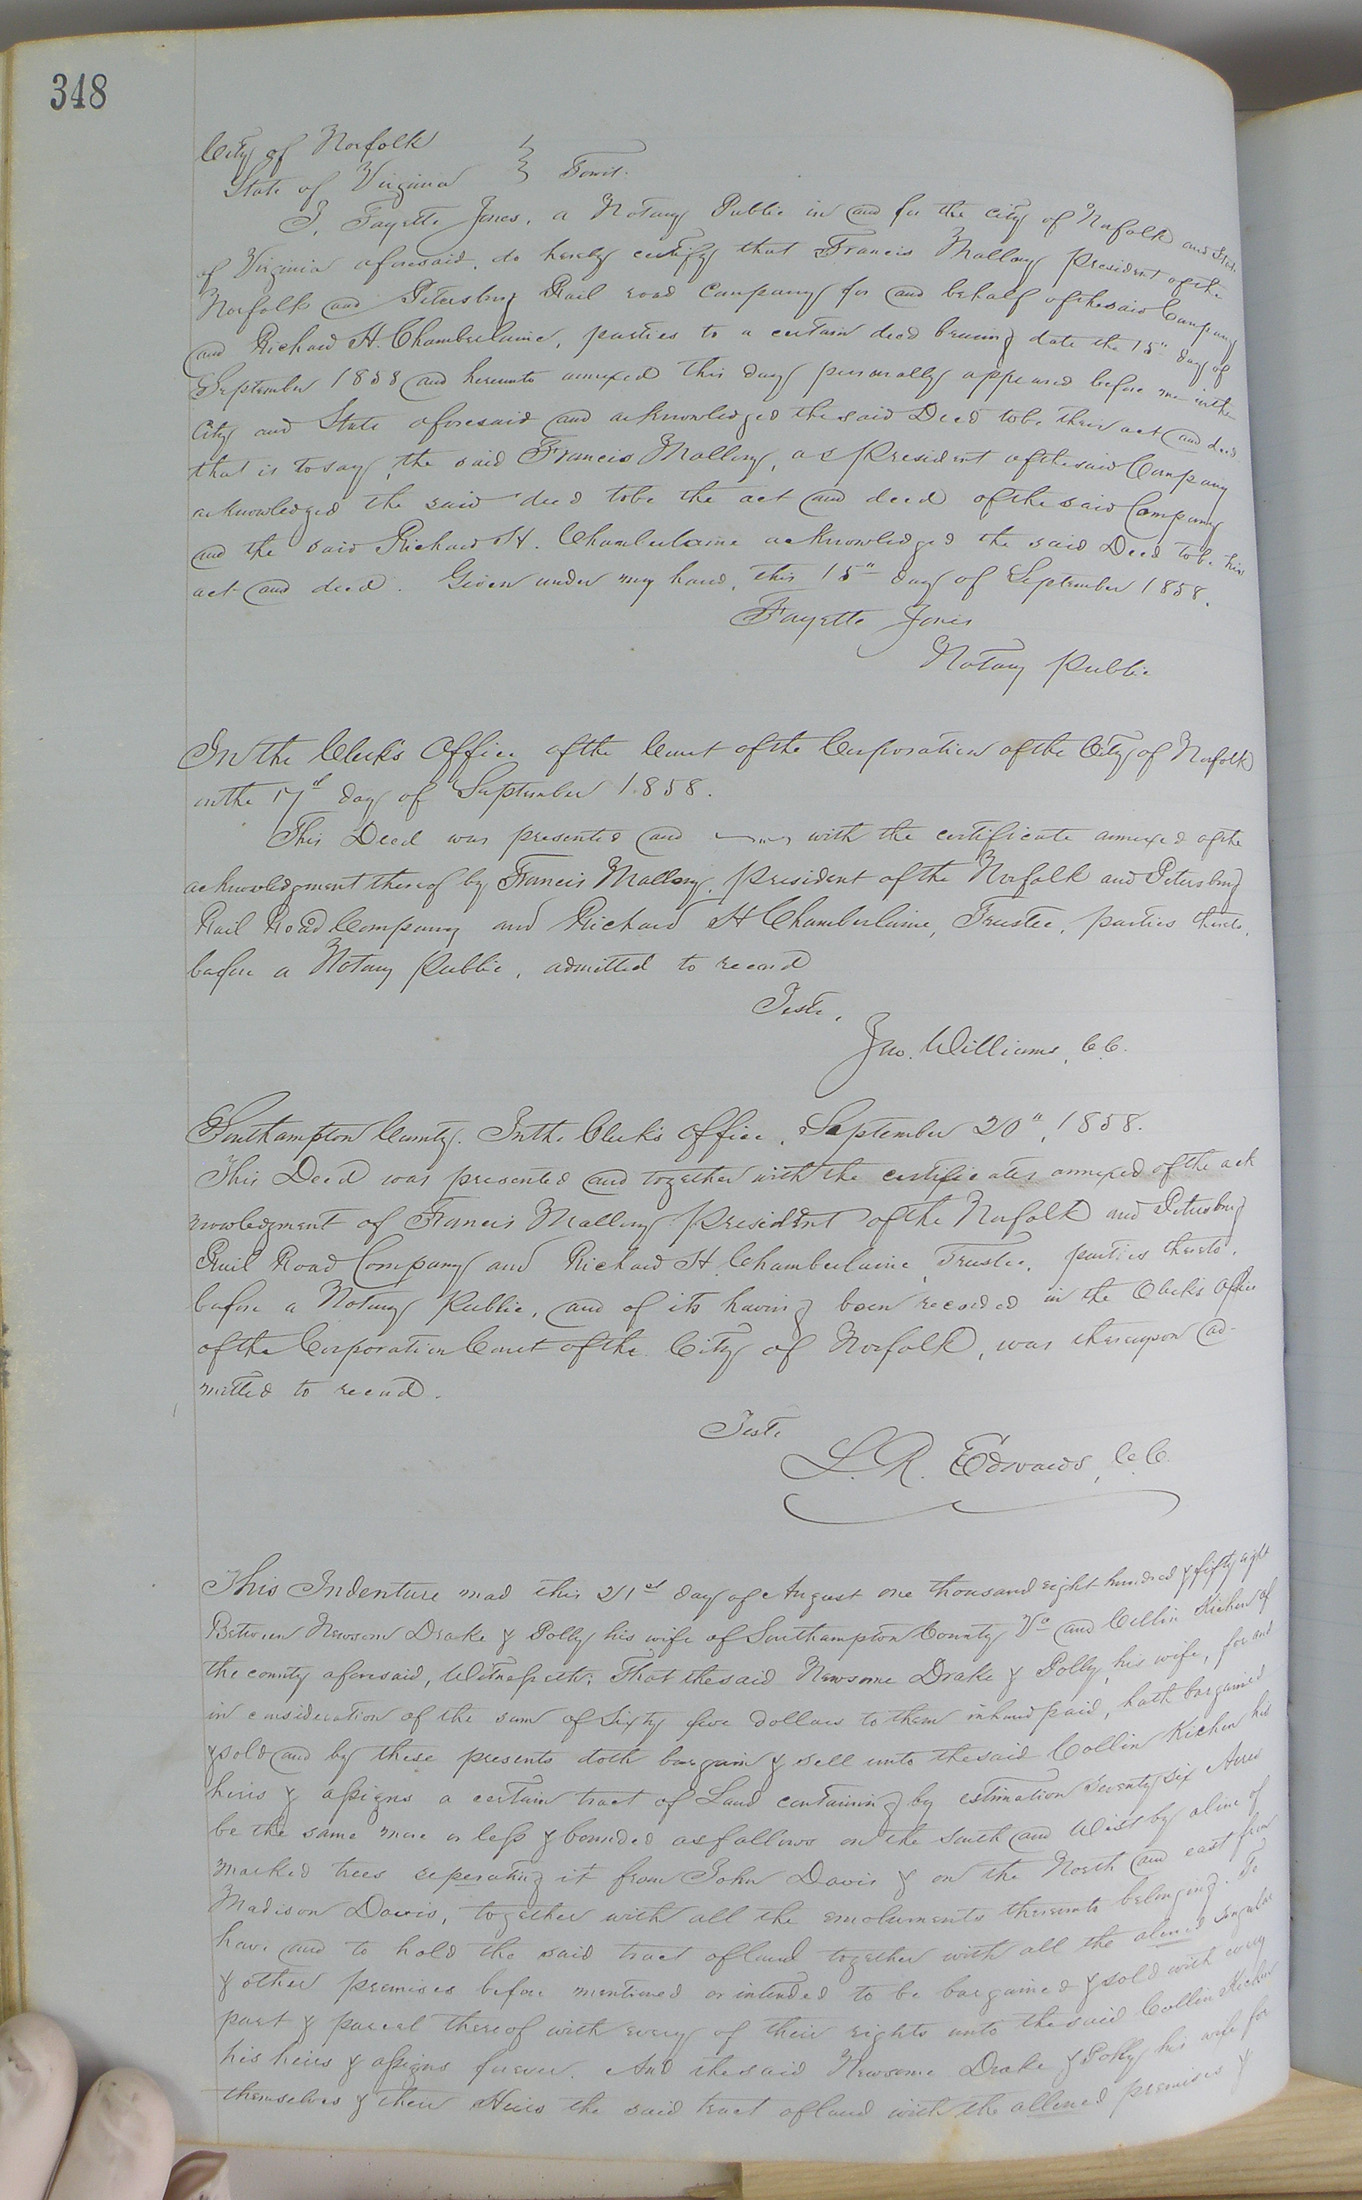 348
City of Norfolk
State of Virginia } Towit.
I, Fayette Jones, a Notary Public in and for the city of Norfolk and State
of Virginia aforesaid, do hereby certify that Francis Mallory President of the
Norfolk and Petersburg Rail road Company for and behalf of the said Company
and Richard H. Chamberlaine, parties to a certain deed bearing date the 15" day of
September 1858 and hereunto annexed this day personally appeared before me in the
City and State aforesaid and acknowledged the said Deed to be their act and deed
that is to say, the said Francis Mallory, as President of the said Company
acknowledged the said deed to be the act and deed of the said Company
and the said Richard H. Chamberlaine acknowledged the said Deed to be his
act and deed. Given under my hand, this 15" day of September 1858.
Fayette Jones
Notary Public
In the Clerk's Office of the Court of the Corporation of the City of Norfolk
on the 17th day of September 1858.
This Deed was presented and with the certificate annexed of the
acknowledgment thereof by Francis Mallory, President of the Norfolk and Petersburg
Rail Road Company and Richard H Chamberlaine, Trustee, parties thereto,
before a Notary Public, admitted to record
Teste,
Jno. Williams, C.C.
Southampton County. In the Clerk's office, September 20", 1858.
This Deed was presented and together with the certificates annexed of the ack
nowledgment of Francis Mallory President of the Norfolk and Petersburg
Rail Road Company and Richard H. Chamberlaine, Trustee, parties thereto,
before a Notary Public, and of its having been recorded in the Clerks Office
of the Corporation Court of the City of Norfolk, was thereupon ad-
mitted to record.
Teste
L. R. Edwards, C.C.
This Indenture mad this 21st day of August one thousand eight hundred & fifty eight
Between Newsom Drake & Polly his wife of Southampton County Va and Collin Kichen of
the county aforesaid, Witnesseth; That the said Newsome Drake & Polly, his wife, for and
in consideration of the sum of Sixty five dollars to them in hand paid, hath bargained
& sold and by these presents doth bargain & sell unto the said Collin Kichen his
heirs & assigns a certain tract of Land containing by estimation Seventy six Acres
be the same more or less & bounded as follows on the South and West by a line of
marked trees seperating it from John Davis & on the North and east from
Madison Davis, together with all the emoluments thereunto belonging. To
have and to hold the said tract of land together with all the alined singular
& other premises before mentioned or intended to be bargained & sold with every
part & parcel thereof with every of their rights unto the said Collin Kichen
his heirs & assigns forever. And the said Newsome Drake & Polly his wife for
themselves & their Heirs the said tract of land with the allened premises &